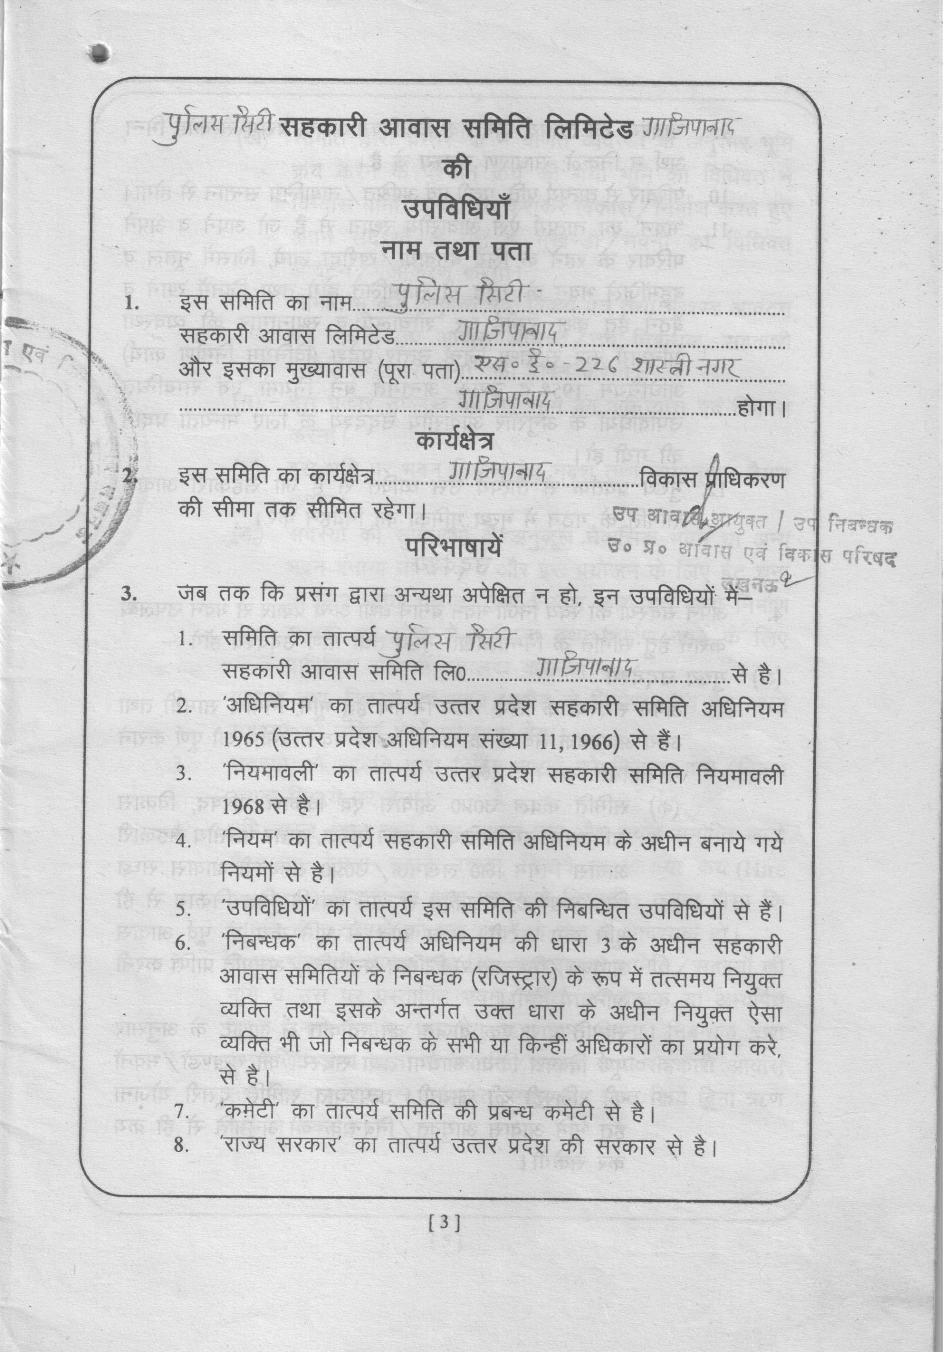 पुलिस सिटी सहकारी आवास समिति लिमिटेड गाजियाबाद
की
उपविधियाँ
नाम तथा पता
1. इस समिति का नाम पुलिस सिटी
सहकारी आवास लिमिटेड गाजियाबाद
और इसका मुख्यावास (पूरा पता) एस० ई० - 226 शास्त्री नगर
गाजियाबाद होगा।
कार्यक्षेत्र
2. इस समिति का कार्यक्षेत्र गाजियाबाद विकास प्राधिकरण
की सीमा तक सीमित रहेगा।
उप आवास आयुक्त / उप निबन्धक
उ० प्र० आवास एवं विकास परिषद
लखनऊ
परिभाषायें
3. जब तक कि प्रसंग द्वारा अन्यथा अपेक्षित न हो, इन उपविधियों में–
1. समिति का तात्पर्य पुलिस सिटी
सहकारी आवास समिति लि0 गाजियाबाद से है।
2. 'अधिनियम' का तात्पर्य उत्तर प्रदेश सहकारी समिति अधिनियम
1965 (उत्तर प्रदेश अधिनियम संख्या 11, 1966) से हैं।
3. 'नियमावली' का तात्पर्य उत्तर प्रदेश सहकारी समिति नियमावली
1968 से है।
4. 'नियम' का तात्पर्य सहकारी समिति अधिनियम के अधीन बनाये गये
नियमों से है।
5. 'उपविधियों' का तात्पर्य इस समिति की निबन्धित उपविधियों से हैं।
6. 'निबन्धक' का तात्पर्य अधिनियम की धारा 3 के अधीन सहकारी
आवास समितियों के निबन्धक (रजिस्ट्रार) के रूप में तत्समय नियुक्त
व्यक्ति तथा इसके अन्तर्गत उक्त धारा के अधीन नियुक्त ऐसा
व्यक्ति भी जो निबन्धक के सभी या किन्हीं अधिकारों का प्रयोग करे,
से है।
7. 'कमेटी' का तात्पर्य समिति की प्रबन्ध कमेटी से है।
8. 'राज्य सरकार' का तात्पर्य उत्तर प्रदेश की सरकार से है।
[ 3 ]